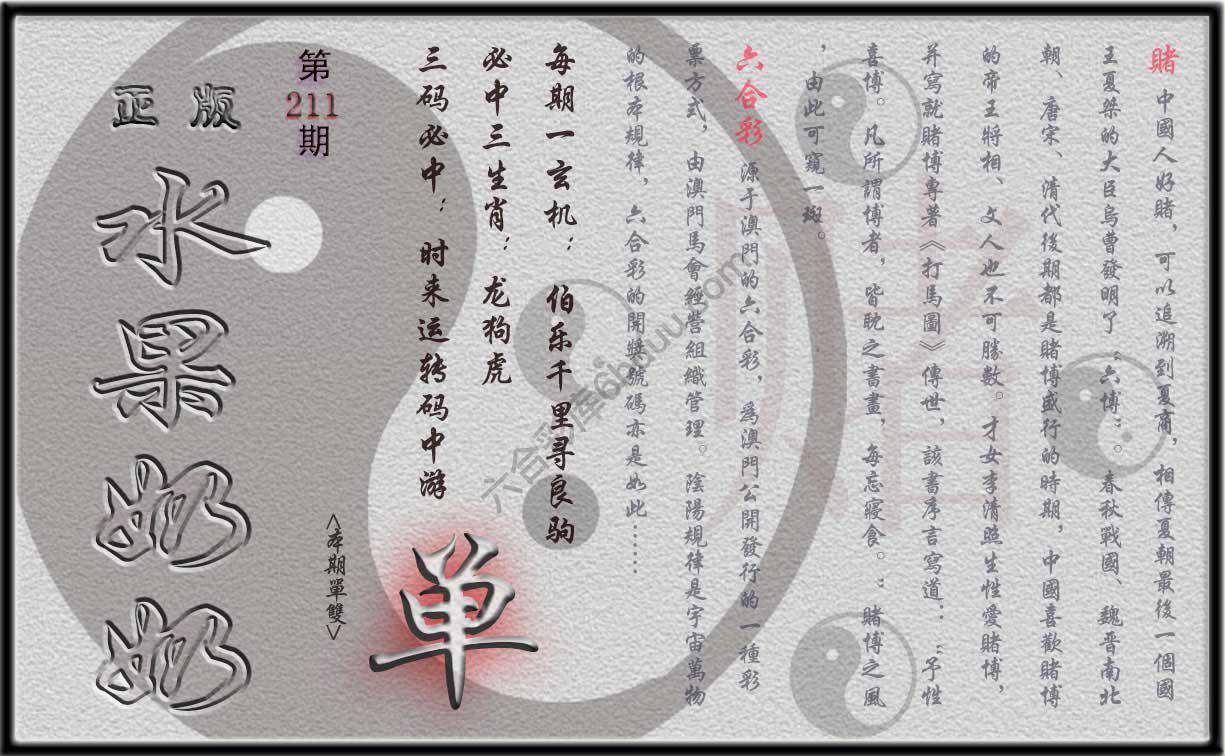 賭 中國人好賭，可以追溯到夏商，相傳夏朝最後一個國
王夏桀的大臣烏曹發明了“六博”。春秋戰國、魏晉南北
朝、唐宋、清代後期都是賭博盛行的時期，中國喜歡賭博
的帝王將相、文人也不可勝數。才女李清照生性愛賭博，
并寫就賭博專著《打馬圖》傳世，該書序言寫道：“予性
喜博。凡所謂博者，皆耽之書畫，每忘寢食。：賭博之風
，由此可窺一斑。
六合彩 源于澳門的六合彩，爲澳門公開發行的一種彩
票方式，由澳門馬會經營組織管理。陰陽規律是宇宙萬物
的根本規律，六合彩的開獎號碼亦是如此……
每期一玄机：伯乐千里寻良驹
必中三生肖：龙狗虎
三码必中：时来运转码中游
单
<本期單雙>
第211期
正版
水果奶奶
賭
六合彩库6huuu.com